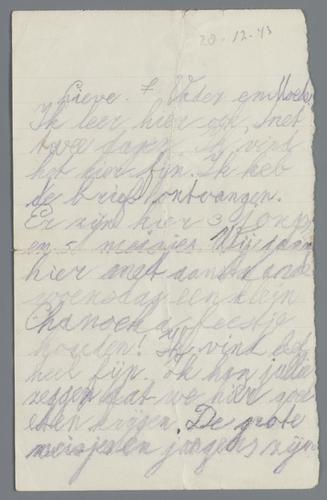 20-12-43
Lieve. Vader en Moeder
Ik leer hier ook, met
twee dagen. Ik vind
het hier fijn. Ik heb
de brief ontvangen.
Er zijn hier 3 jongens
en 5 meisjes. Wij gaan
hier
woensdag een klein
Chanoeka feestje
houden! Ik vind het
heel fijn. Ik kan jullie
zeggen dat we hier goed
eten krijgen. De grote
meisjes en jongens zijn